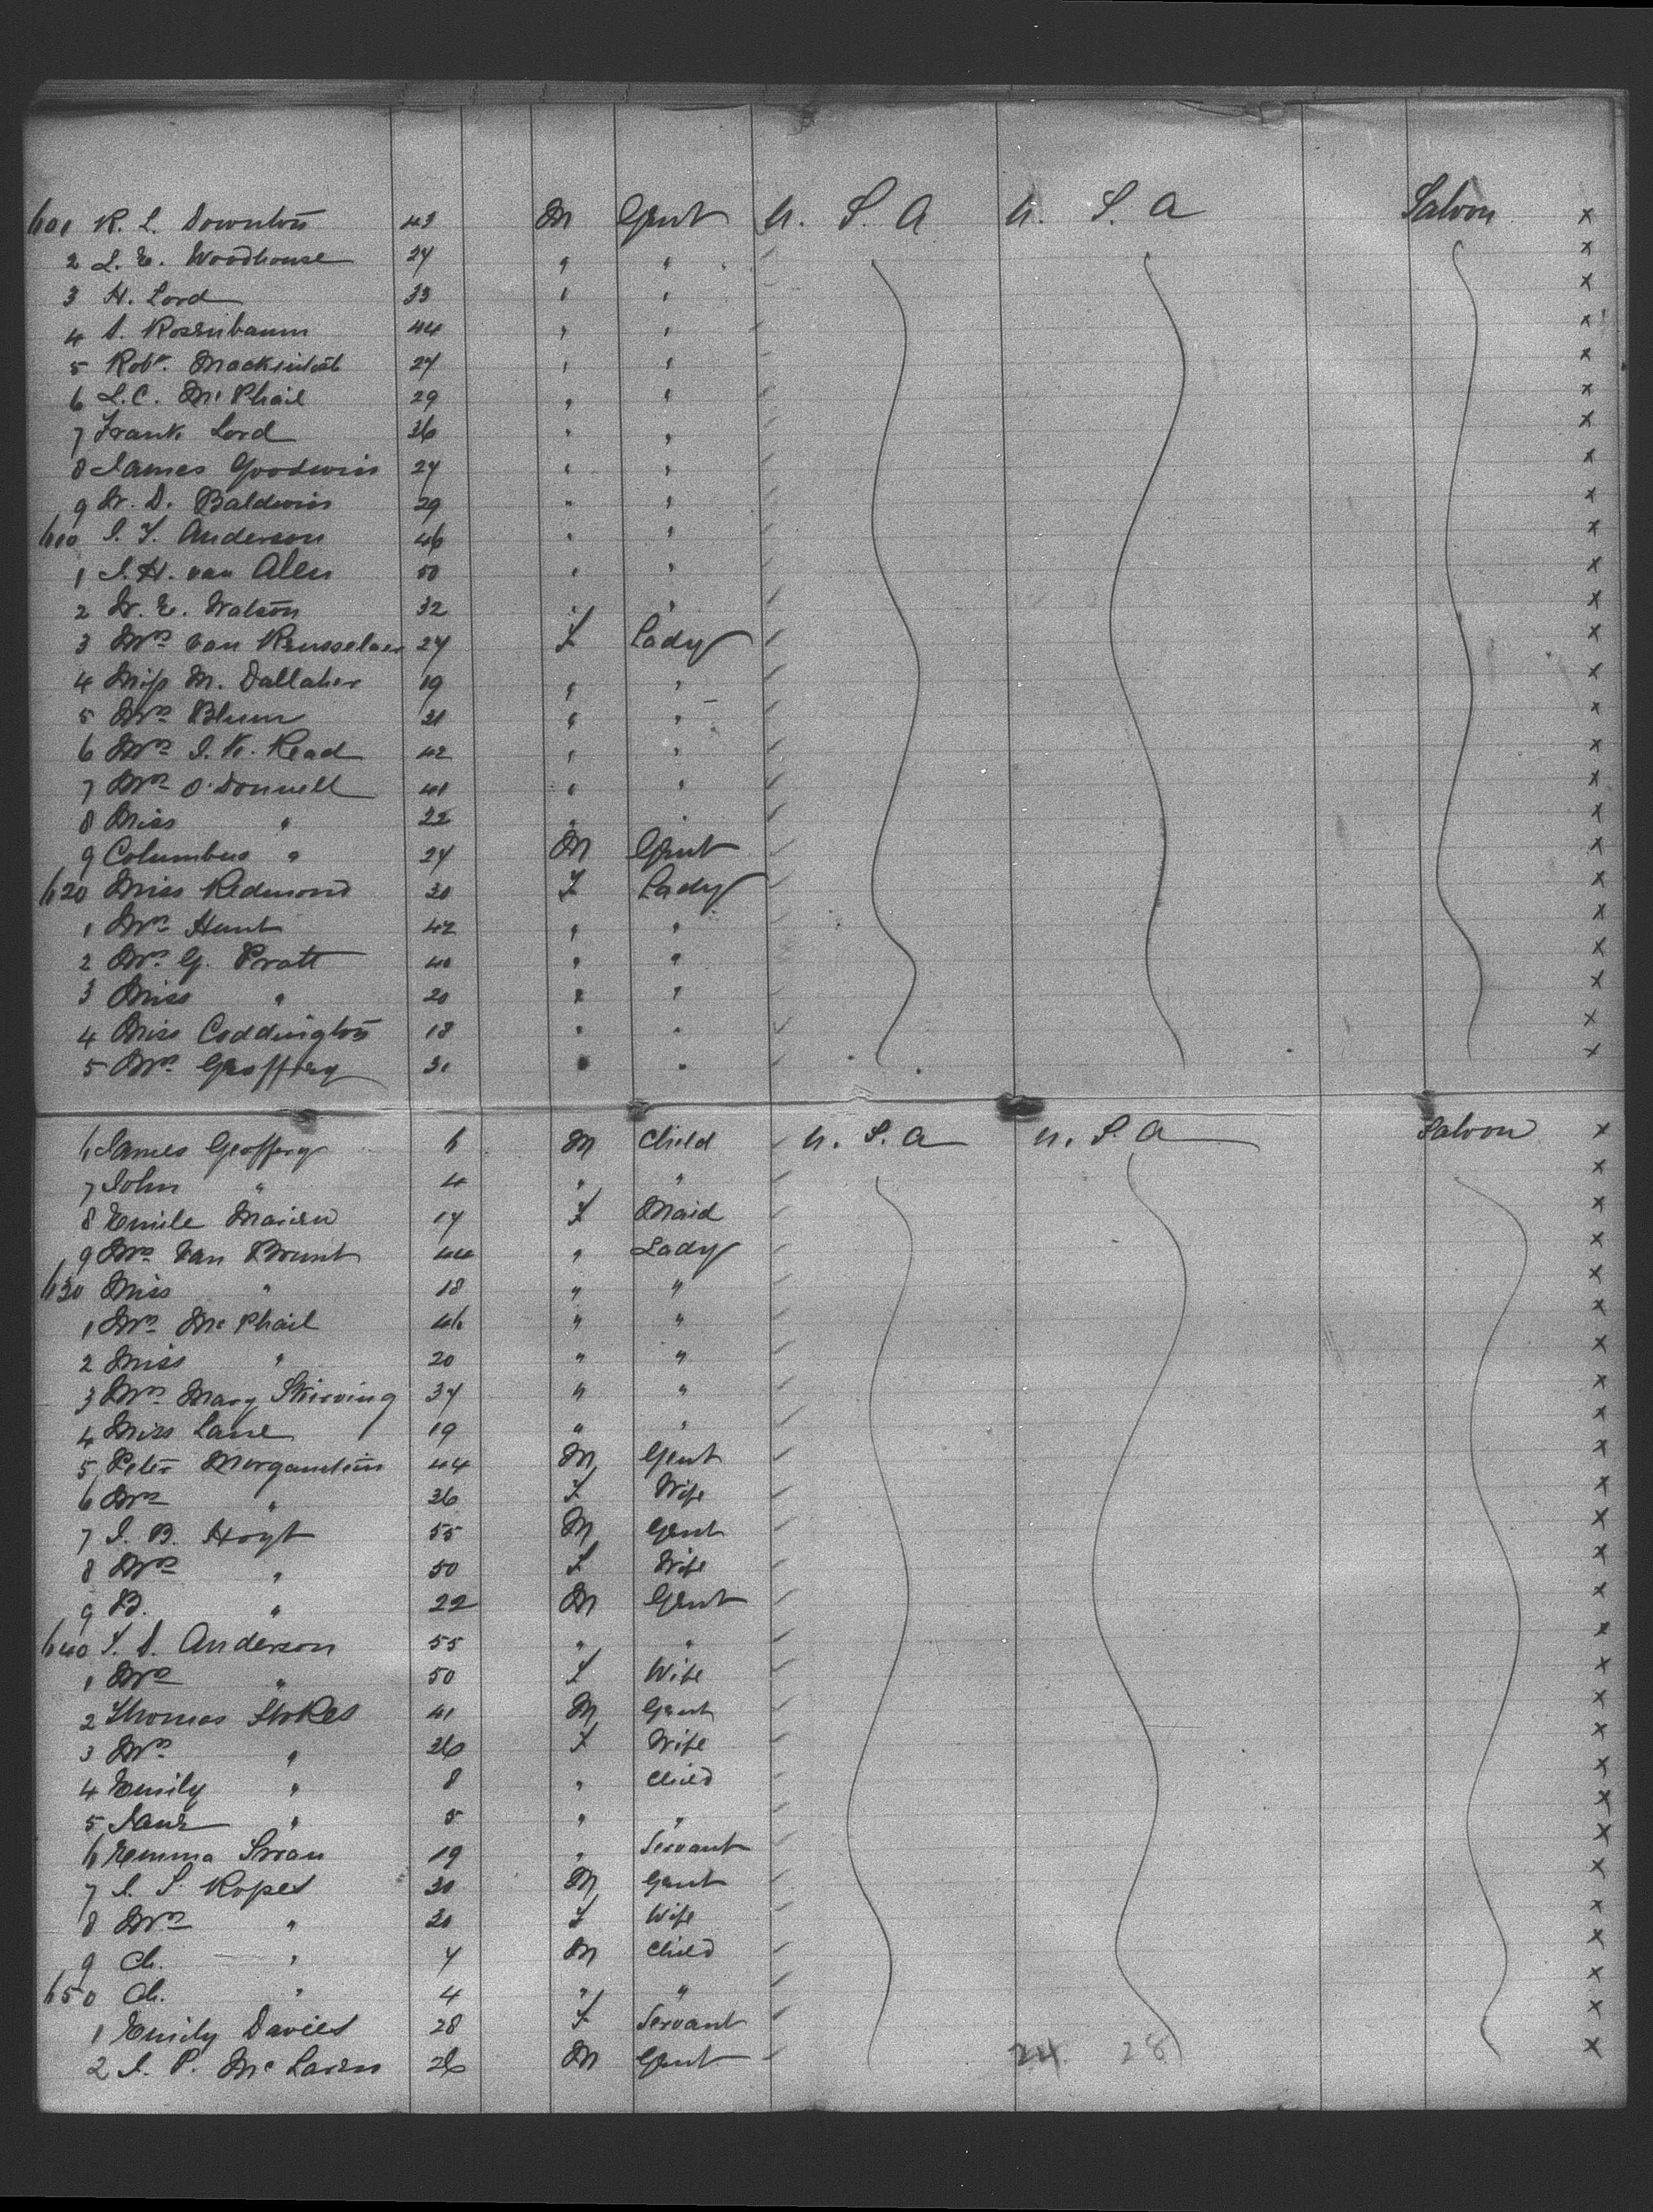 601 R. L. Downton 43 M Gent U. S. A U. S. A Saloon x
2 L. E. Woodhouse 24 " " x
3 H. Lord 33 " " x
4 S. Rosenbaum 44 " " x
5 Robt. Mackintosh 24 " " x
6 L. C. Mc Phail 29 " " x
7 Frank Lord 36 " " x
8 James Goodwin 24 " " x
9 W. D. Baldwin 29 " " x
610 Anderson 46 " " x
1 J. H. van Alen 50 " " x
2 W. E. Watson 32 " " x
3 Mrs van Rensselaer 24 F Lady x
4 Miss M. Dallaher 19 " " x
5 Mrs Blum 31 " " x
6 Mrs J. K. Read 42 " " x
7 Mrs O'Donnell 41 " " x
8 Miss " 22 " " x
9 Columbus " 24 M Gent x
620 Miss Redmond 30 F Lady x
1 Mrs Hunt 42 " " x
2 Mrs G. Pratt 40 " " x
3 Miss " 20 " " x
4 Miss Coddington 18 " " x
5 Mrs Geoffery 31 " " x
6 James Geoffery 6 M Child U. S. A U. S. A Saloon x
7 John " 4 " " x
8 Emile 17 F Maid x
9 Mrs Van Brunt 44 " Lady x
630 Miss " 18 " " x
1 Mrs Mc Phail 46 " " x
2 Miss " 20 " " x
3 Mrs Mary Skirving 34 " " x
4 Miss Lane 19 " " x
5 Peter 44 M Gent x
6 Mrs " 36 F Wife x
7 J. B. Hoyt 55 M Gent x
8 Mrs " 50 F Wife x
9 B. " 22 M Gent x
640 Anderson 55 " " x
1 Mrs " 50 F Wife x
2 Thomas Stokes 41 M Gent x
3 Mrs " 36 F Wife x
4 Emily " 8 " Child x
5 Jane " 5 " " x
6 Emma Swan 19 " Servant x
7 J. S. Ropes 30 M Gent x
8 Mrs " 30 F Wife x
9 Ch. " 7 M Child x
650 Ch. " 4 " " x
1 Emily Davies 28 F Servant x
2 J. P. Mc Laren 26 M Gent 24 28 x